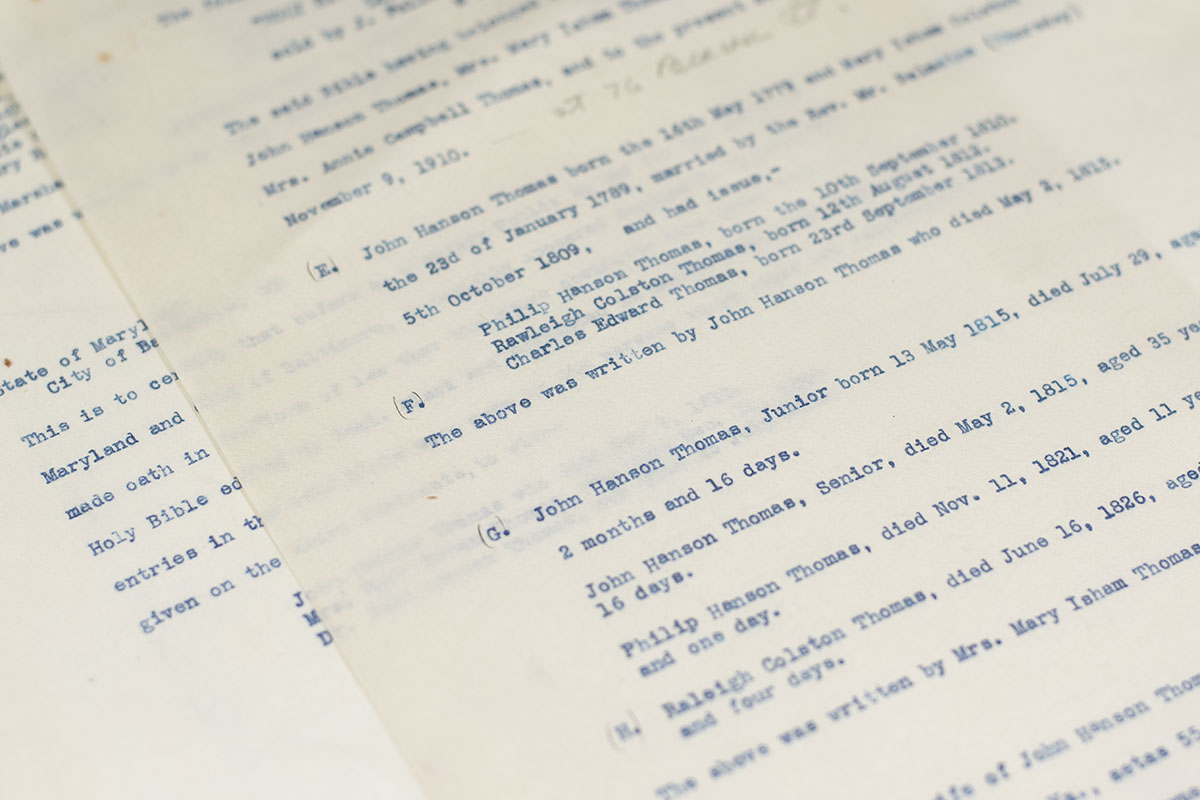 sold by J.
The said Bible having
John Hanson Thomas, Mrs. Mary Isham
Mrs. Annie Campbell Thomas, and to the present
November 9, 1910.
at 76
(E. John Hanson Thomas born the 16th May 1779 and Mary Isham Colston
the 23d of January 1789, married by the Rev. Mr. Balmaine (Thursday)
5th October 1809, and had issue,-
Philip Hanson Thomas, born the 10th September 1810.
Rawleigh Colston Thomas, born 12th August 1812.
Charles Edward Thomas, born 23rd September 1813.
(F.)
The above was written by John Hanson Thomas who died May 2, 1815.
(G. John Hanson Thomas, Junior born 13 May 1815, died July 29, aged
2 months and 16 days.
John Hanson Thomas, Senior, died May 2, 1815, aged 35 ye
16 days.
Philip Hanson Thomas, died Nov. 11, 1821, aged 11 ye
and one day.
Raleigh Colston Thomas, died June 16, 1826, aged
and four days.
(H.)
The above was written by Mrs. Mary Isham Thomas
ife of John Hanson Thom
aetas 55
ve was
State of Maryl
City of Ba
This is to cer
Maryland and
made oath in
Holy Bible ed
entries in th
given on the
J
M
D